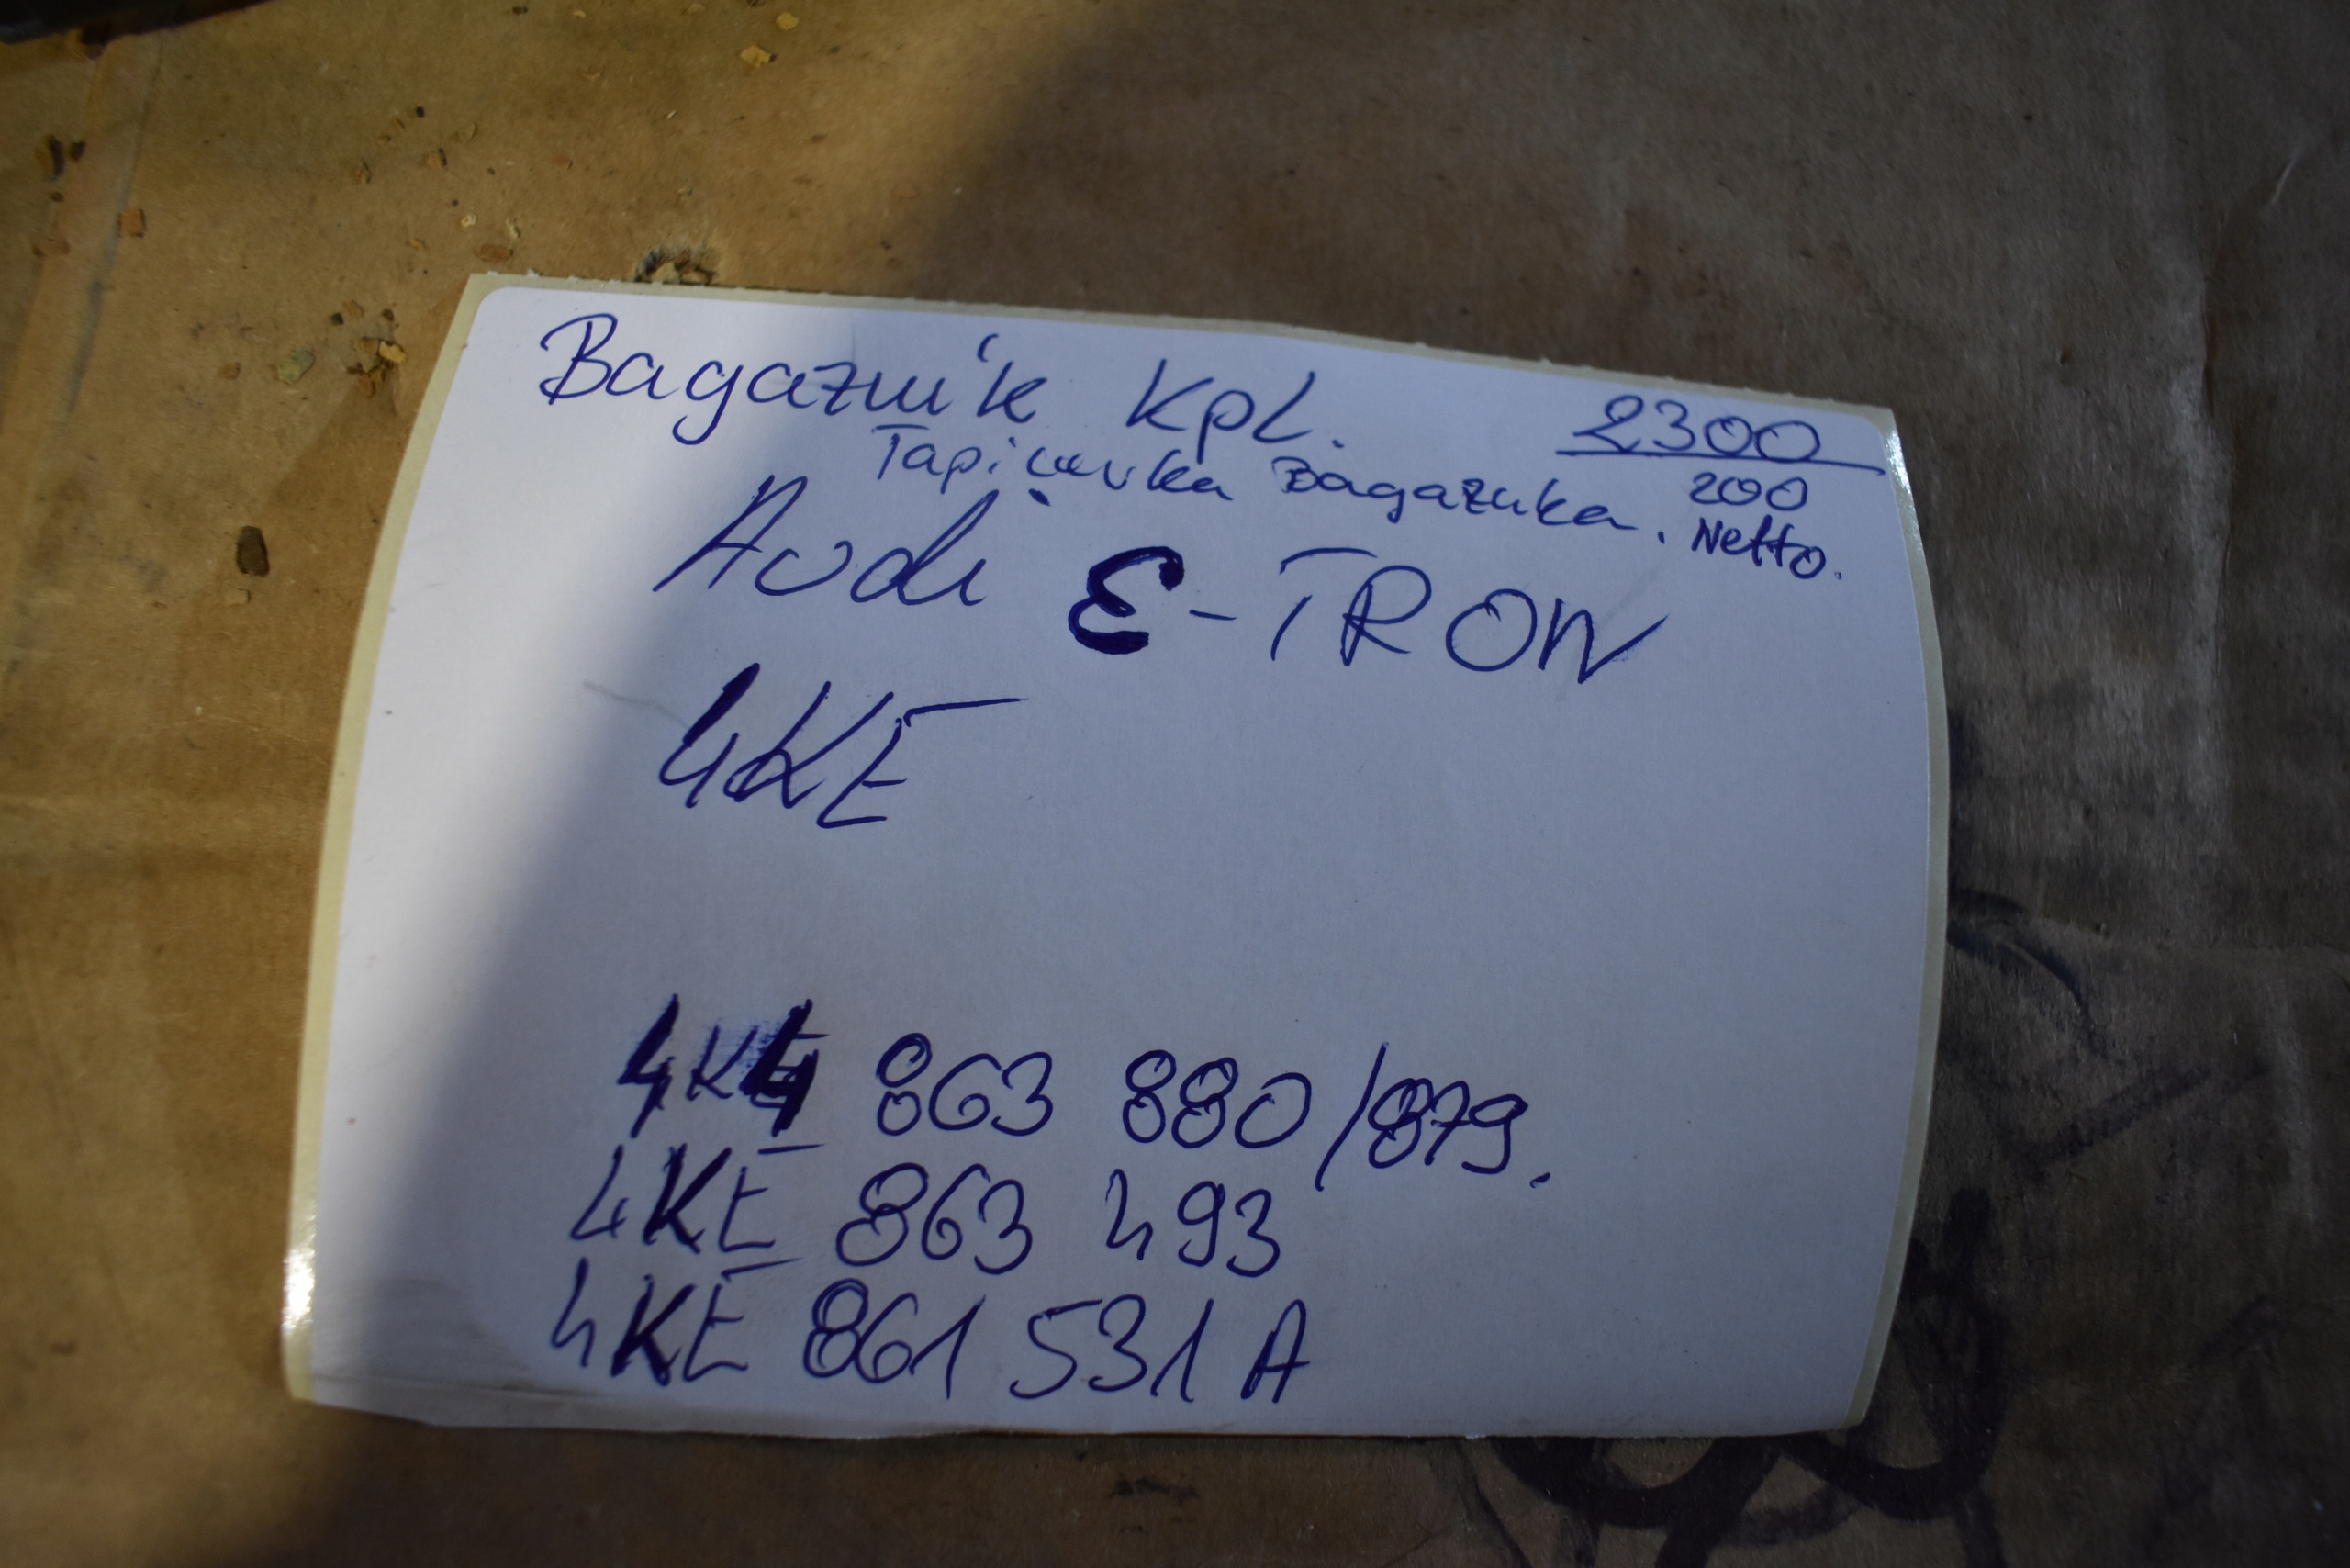 Bagażnik kpl. 2300
Tapicerka Bagażnika. 200
Netto.
Audi E-TRON
4KE
4K4 863 880/879.
4KE 863 493
4KE 861 531 A